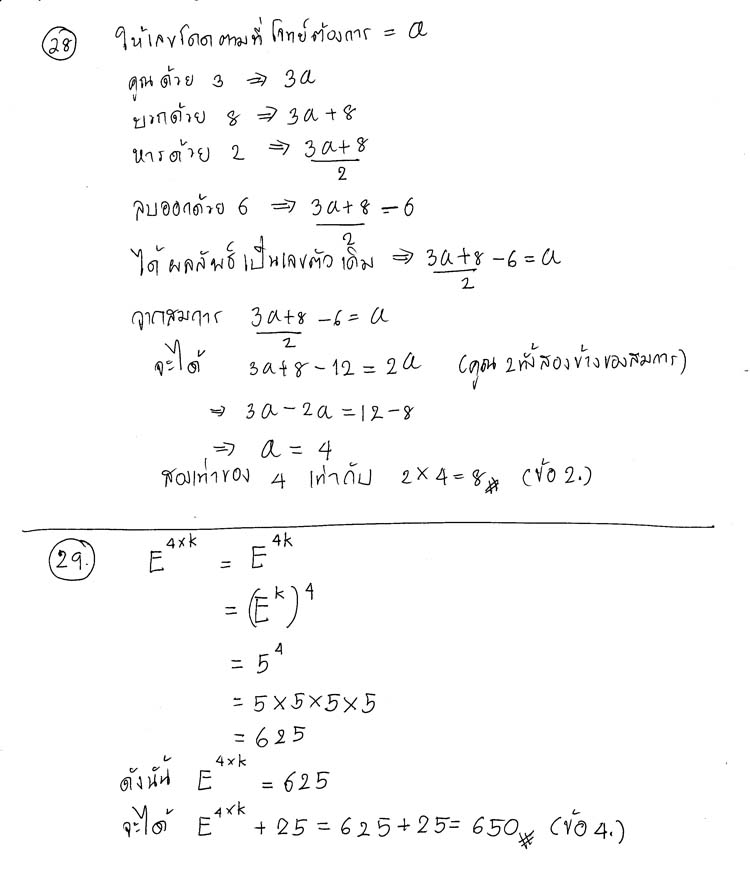 28 ให้เลขโดดตามที่โจทย์ต้องการ = a
คูณด้วย 3 ⇒ 3a
บวกด้วย 8 ⇒ 3a+8
หารด้วย 2 ⇒ (3a+8)/2
ลบออกด้วย 6 ⇒ (3a+8)/2 - 6
ได้ผลลัพธ์เป็นเลขตัวเดิม ⇒ (3a+8)/2 - 6 = a
จากสมการ (3a+8)/2 - 6 = a
จะได้ 3a+8-12 = 2a (คูณ 2 ทั้งสองข้างของสมการ)
⇒ 3a-2a = 12-8
⇒ a = 4
สองเท่าของ 4 เท่ากับ 2×4=8# (ข้อ 2.)
29. E^(4×k) = E^(4k)
= (E^k)^4
= 5^4
= 5×5×5×5
= 625
ดังนั้น E^(4×k) = 625
จะได้ E^(4×k) + 25 = 625+25 = 650# (ข้อ 4.)